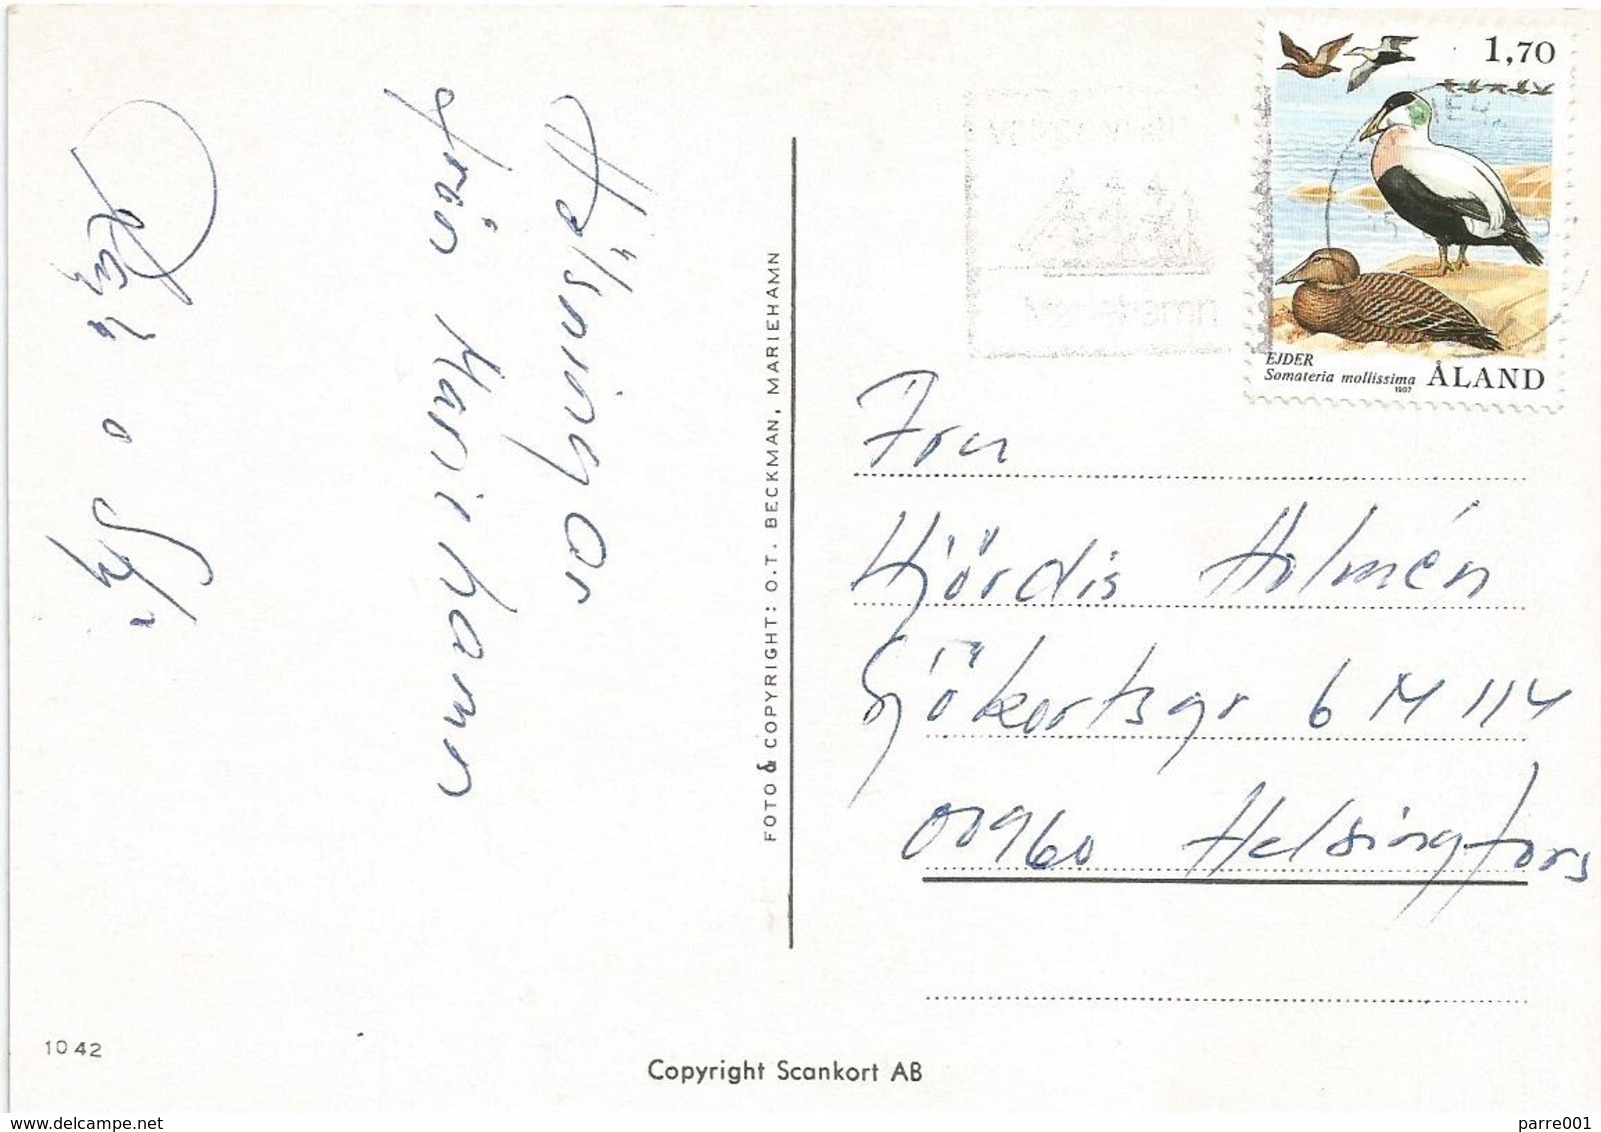 Hälsningar
från Mariehamn
o
FOTO & COPYRIGHT: O.T. BECKMAN, MARIEHAMN
1,70
EJDER
Somateria mollissima
1987
ÅLAND
Mariehamn
Fru
Hjördis Holmén
Sjökortsgr 6 M 114
00960 Helsingfors
1042
Copyright Scankort AB
delcampe.net
parre001